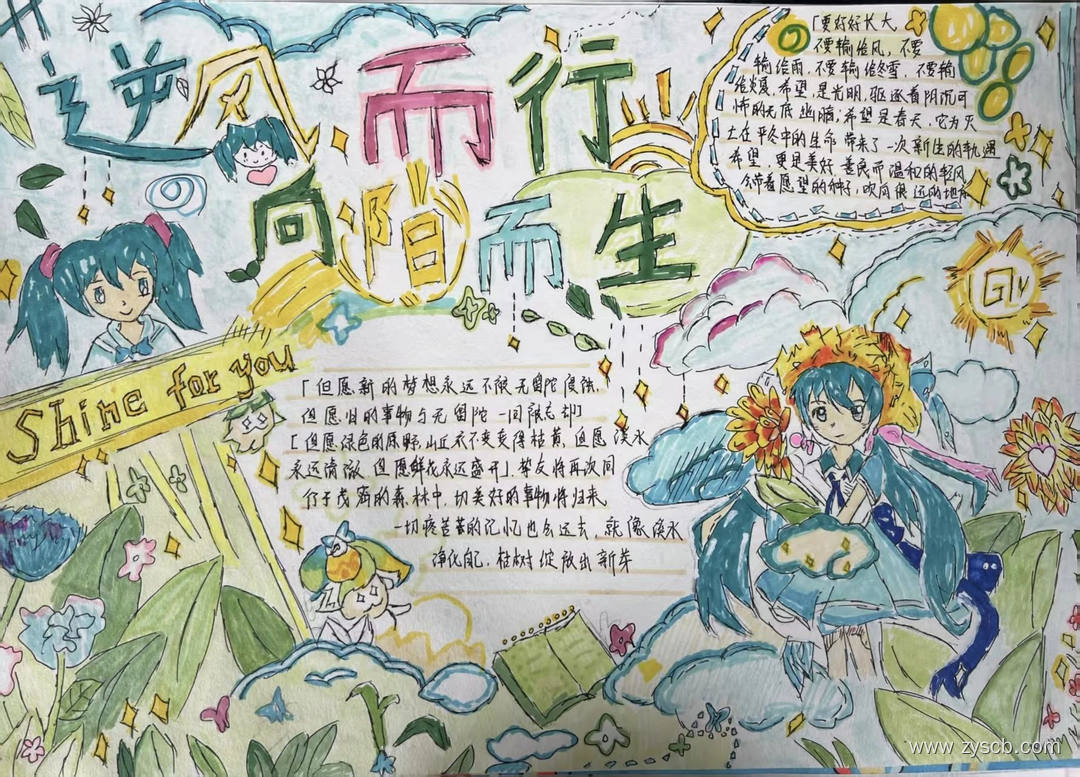 逆风而行
向阳而生
「要好好长大,
不要输给风,不要
输给雨,不要输给冬雪,不要输
给炎夏,希望是光明,驱逐着阴沉可
怖的无底幽暗,希望是春天,它为灭
亡在平冬中的生命带来了一次新生的轨迹
希望,更是美好,善良而温和的轻风
令带着愿望的种子,吹向很远的地方
Shine for you
「但愿新的梦想永远不被无留陀侵蚀,
但愿旧的事物与无留陀一同被忘却」
「但愿绿色的原野,山丘永不变得枯黄,但愿溪水
永远清澈,但愿鲜花永远盛开」挚友将再次同
行于茂密的森林中,一切美好的事物将归来,
一切痛苦的记忆也会远去,就像溪水
净化自己,枯树绽放出新芽
www.zyscb.com